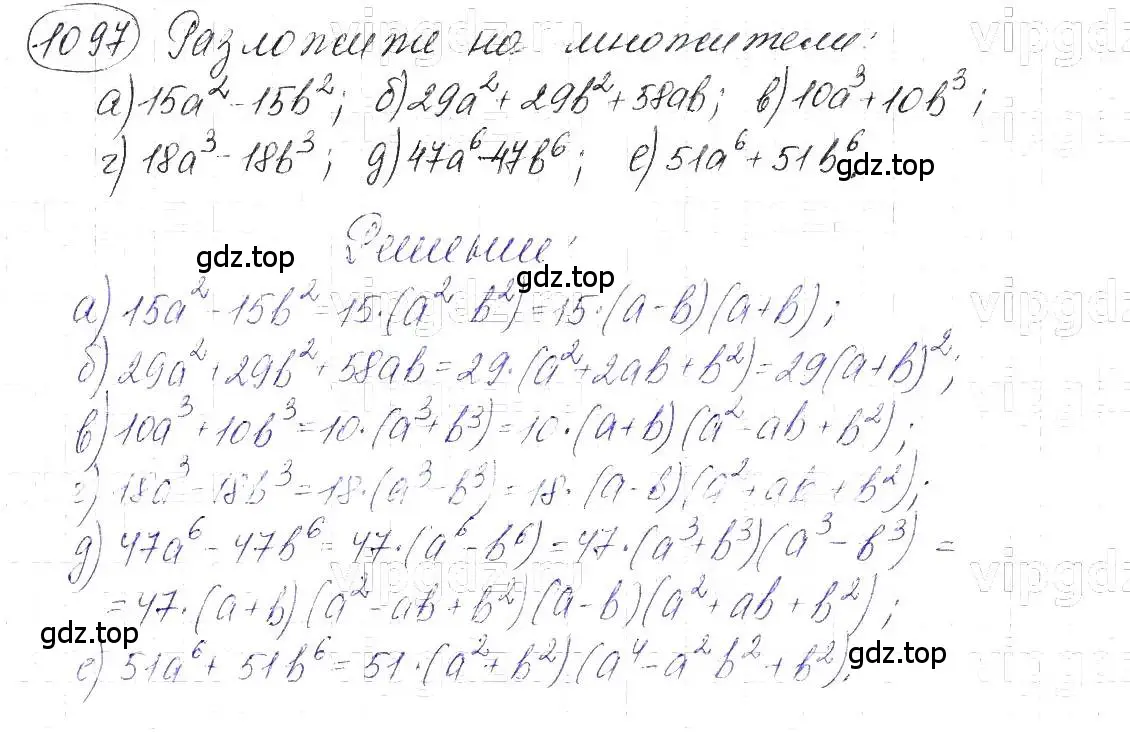 1097 Разложите на множители:
а) 15a² - 15b²; б) 29a² + 29b² + 58ab; в) 10a³ + 10b³;
г) 18a³ - 18b³; д) 47a⁶ - 47b⁶; е) 51a⁶ + 51b⁶
gdz.top
Решение:
gdz.top
gdz.top
а) 15a² - 15b² = 15·(a² - b²) = 15·(a-b)(a+b);
б) 29a² + 29b² + 58ab = 29·(a² + 2ab + b²) = 29(a+b)²;
в) 10a³ + 10b³ = 10·(a³ + b³) = 10·(a+b)(a² - ab + b²);
г) 18a³ - 18b³ = 18·(a³ - b³) = 18·(a-b)(a² + ab + b²);
д) 47a⁶ - 47b⁶ = 47·(a⁶ - b⁶) = 47·(a³ + b³)(a³ - b³) =
= 47·(a+b)(a² - ab + b²)(a-b)(a² + ab + b²);
gdz.top
е) 51a⁶ + 51b⁶ = 51·(a² + b²)(a⁴ - a²b² + b²).
gdz.top